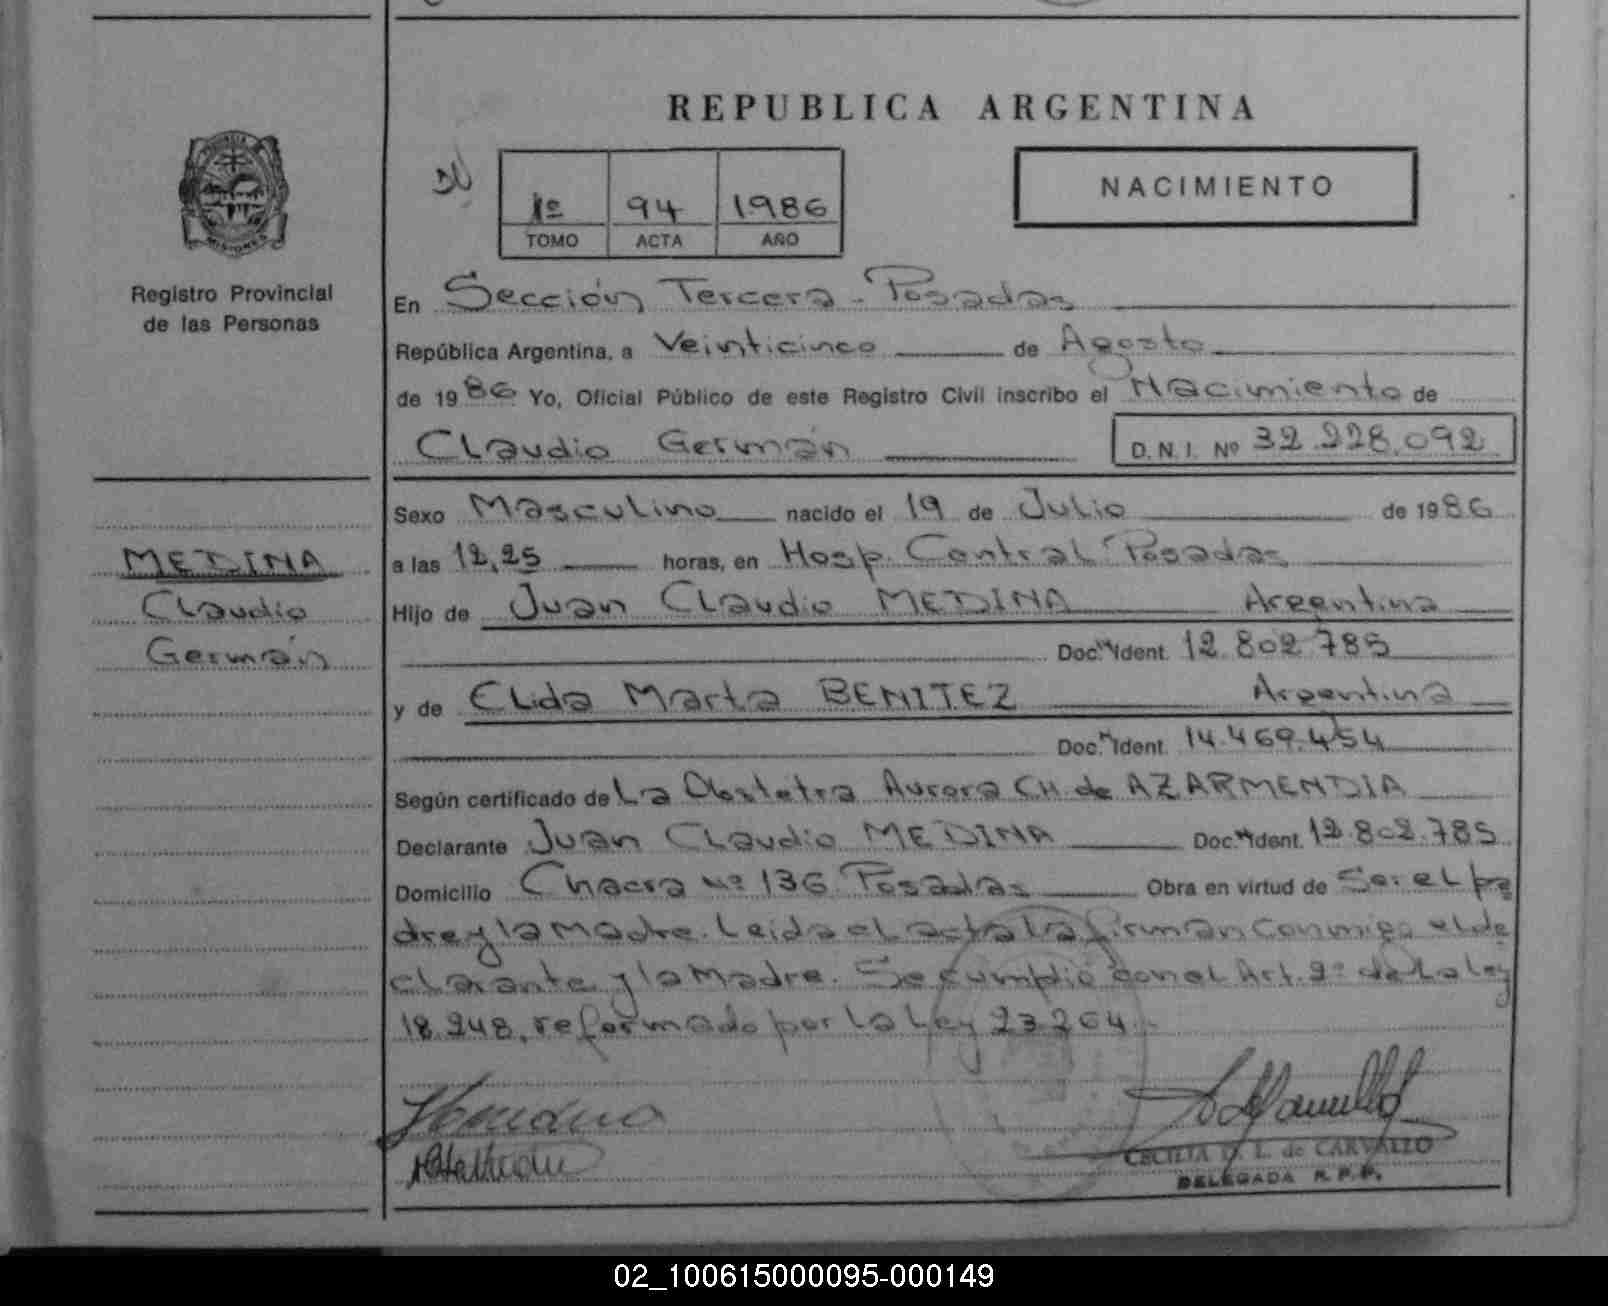 REPUBLICA ARGENTINA
1º 94 1986
TOMO ACTA AÑO
NACIMIENTO
MISIONES
Registro Provincial
de las Personas
En Sección Tercera - Posadas
República Argentina, a Veinticinco de Agosto
de 1986 Yo, Oficial Público de este Registro Civil inscribo el Nacimiento de
Claudio Germán D.N.I. Nº 32.228.092
Sexo Masculino nacido el 19 de Julio de 1986
MEDINA
Claudio
Germán
a las 12,25 horas, en Hosp. Central Posadas
Hijo de Juan Claudio MEDINA Argentina
Doc. Ident. 12.802.785
y de Elida Marta BENITEZ Argentina
Doc. Ident. 14.469.454
Según certificado de La Obstetra Aurora CH. de AZARMENDIA
Declarante Juan Claudio MEDINA Doc. Ident. 12.802.785
Domicilio Chacra Nº 136 Posadas Obra en virtud de Ser el pa
dre y la Madre. Leida el acta la firman Conmigo el de
clarante y la Madre. Se cumplió con el Art. 2º de la Ley
18.248, reformado por la Ley 23.264.
CECILIA D. L. de CARVALLO
DELEGADA R.P.P.
02_100615000095-000149